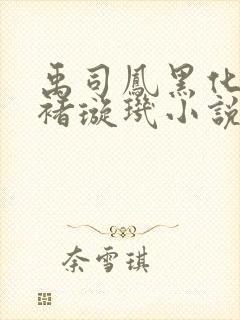 禹司鳳黑化
褚璇璣小說
奈雪琪